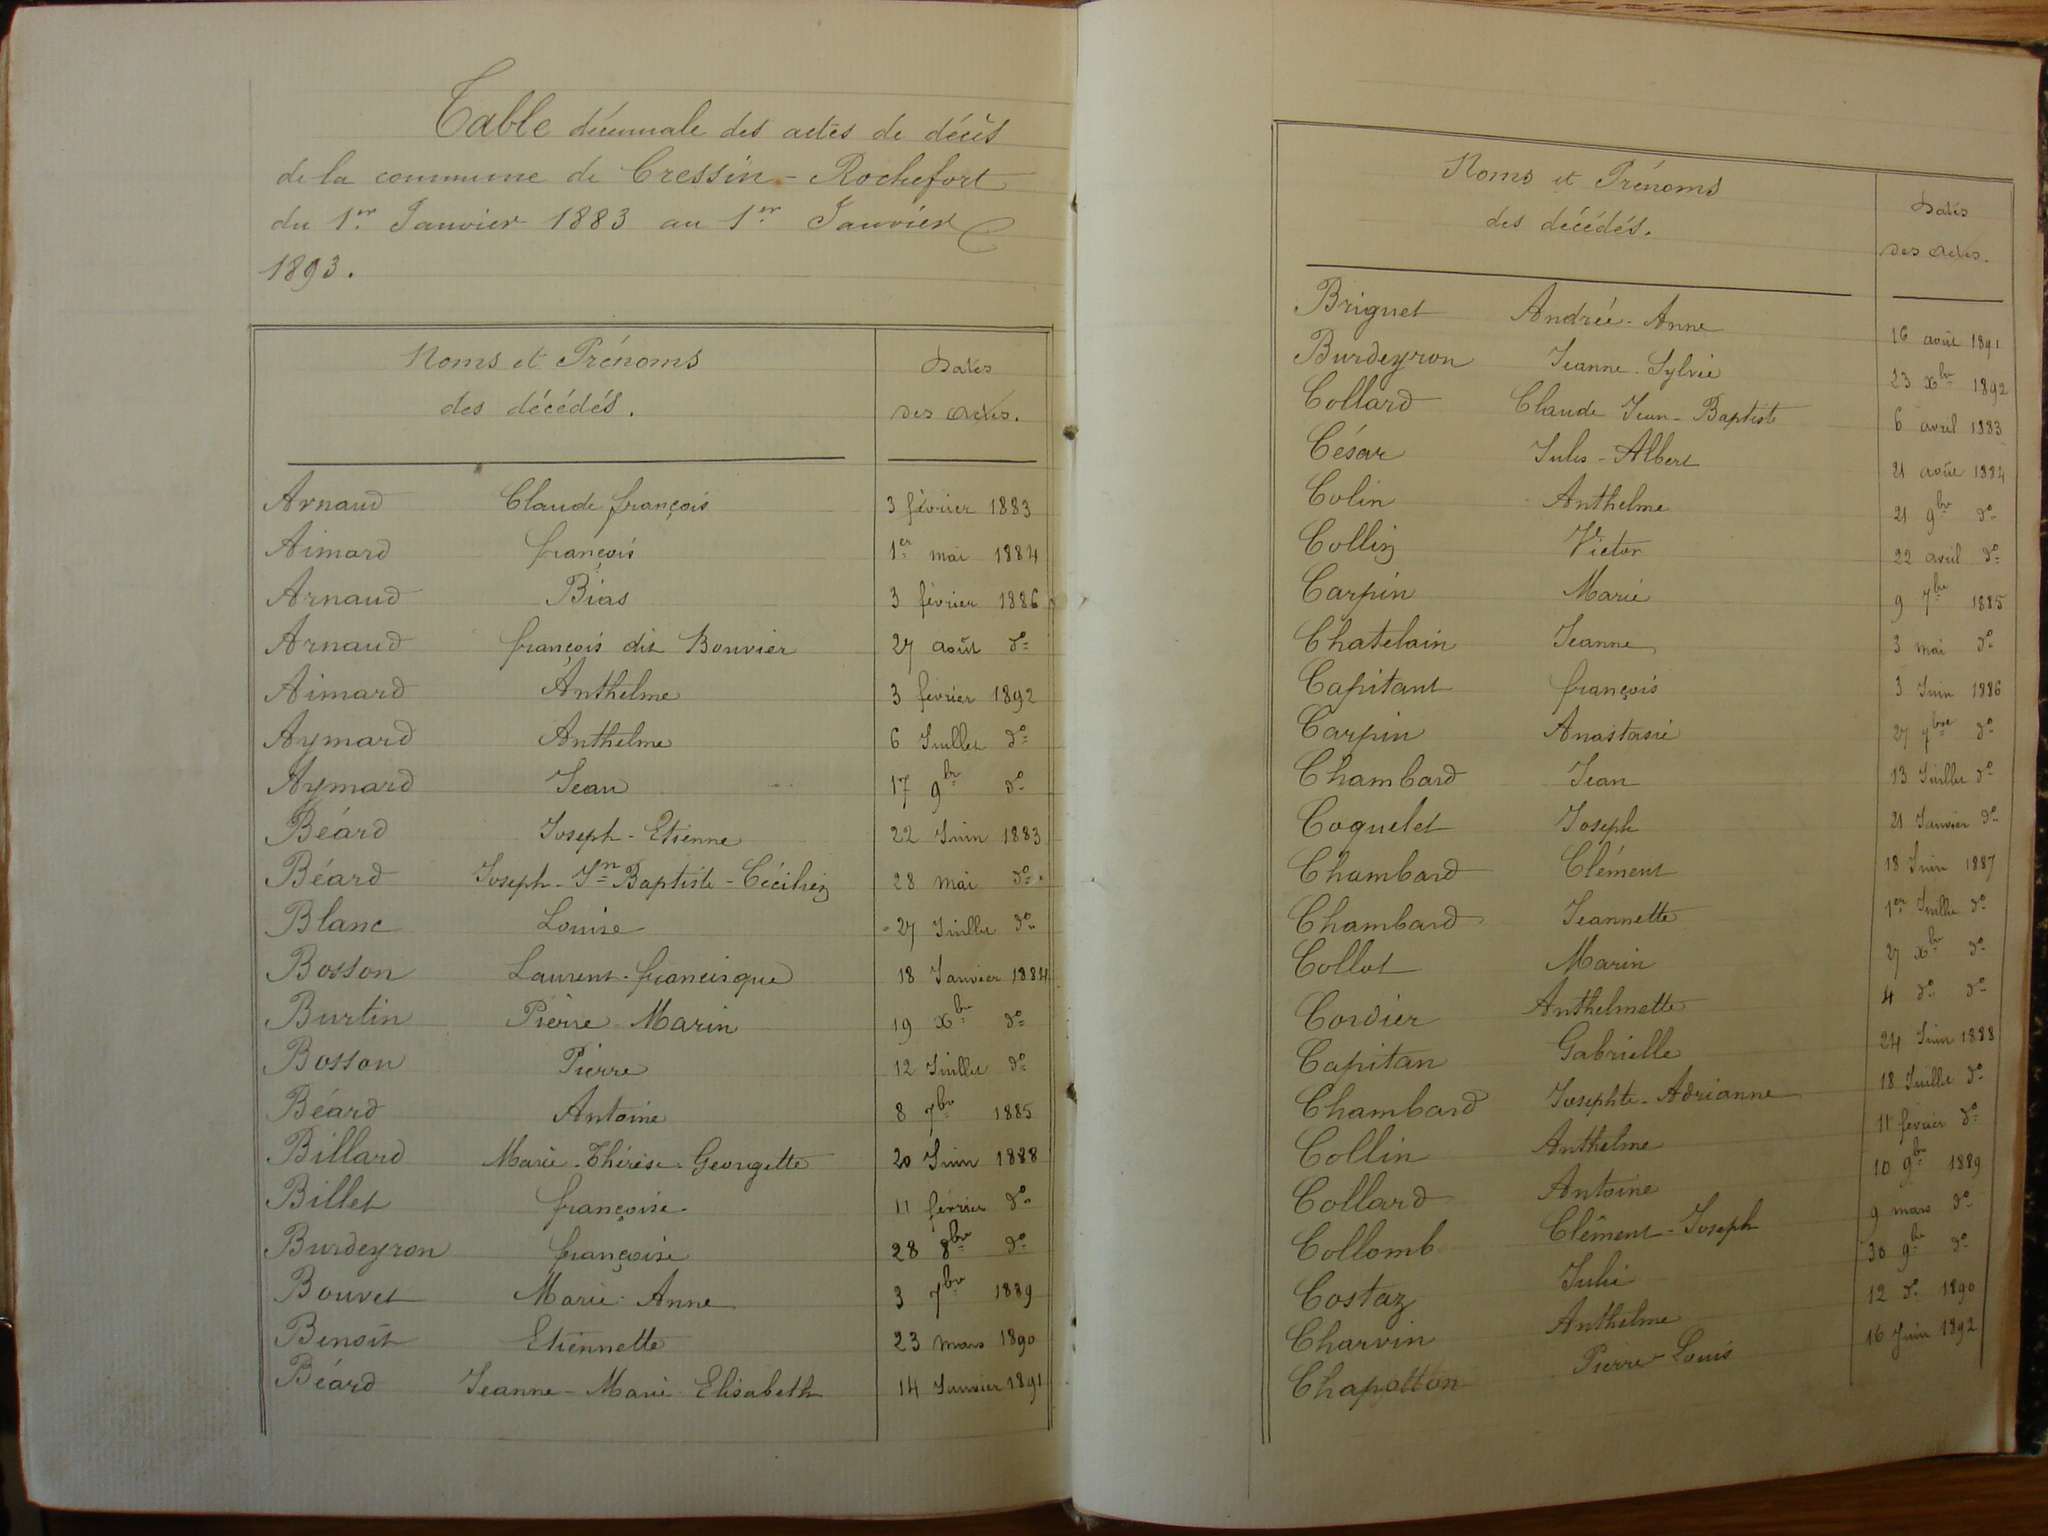 Table décennale des actes de décès
de la commune de Cressin-Rochefort
du 1er Janvier 1883 au 1er Janvier
1893.
Noms et Prénoms
des décédés.
Dates
des actes.
Arnaud Claude françois 3 février 1883
Aimard françois 1er mai 1884
Arnaud Bias 3 février 1886
Arnaud françois dit Bouvier 27 août do
Aimard Anthelme 3 février 1892
Aymard Anthelme 6 Juillet do
Aymard Jean 17 9br do
Béard Joseph-Etienne 22 Juin 1883
Béard Joseph-Jn Baptiste-Cécilien 28 mai do
Blanc Louise 27 Juillet do
Bosson Laurent-francisque 18 Janvier 1884
Burtin Pierre Marin 19 Xbr do
Bosson Pierre 12 Juillet do
Béard Antoine 8 7br 1885
Billard Marie-Thérèse-Georgette 20 Juin 1888
Billet françoise 11 février do
Burdeyron françoise 28 8br do
Bouvet Marie-Anne 3 7br 1889
Benoît Etiennette 23 mars 1890
Béard Jeanne-Marie Elisabeth 14 Janvier 1891
Noms et Prénoms
des décédés.
Dates
des actes.
Briguet Andrée-Anne 16 août 1891
Burdeyron Jeanne-Sylvie 23 Xbr 1892
Collard Claude Jean-Baptiste 6 avril 1883
César Jules-Albert 21 août 1884
Colin Anthelme 21 9br do
Collin Victor 22 avril do
Carpin Marie 9 7bre 1885
Chatelain Jeanne 3 mai do
Capitant françois 3 Juin 1886
Carpin Anastasie 27 7bre do
Chambard Jean 13 Juillet do
Coquelet Joseph 21 Janvier do
Chambard Clément 18 Juin 1887
Chambard Jeannette 1er Juillet do
Collot Marin 27 Xbr do
Cordier Anthelmette 4 do do
Capitan Gabrielle 24 Juin 1888
Chambard Josephte-Adrianne 18 Juillet do
Collin Anthelme 11 février do
Collard Antoine 10 9br 1889
Collomb Clément-Joseph 9 mars do
Costaz Julie 30 9br do
Charvin Anthelme 12 do 1890
Chapotton Pierre-Louis 16 Juin 1892